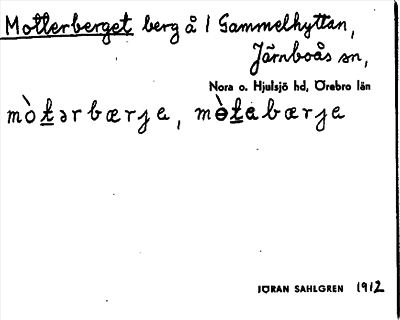 Motterberget berg å / Gammelhyttan,
Järnboås sn,
Nora o. Hjulsjö hd, Örebro län
mòt̲ərbærja, mòt̲abærja
JÖRAN SAHLGREN 1912